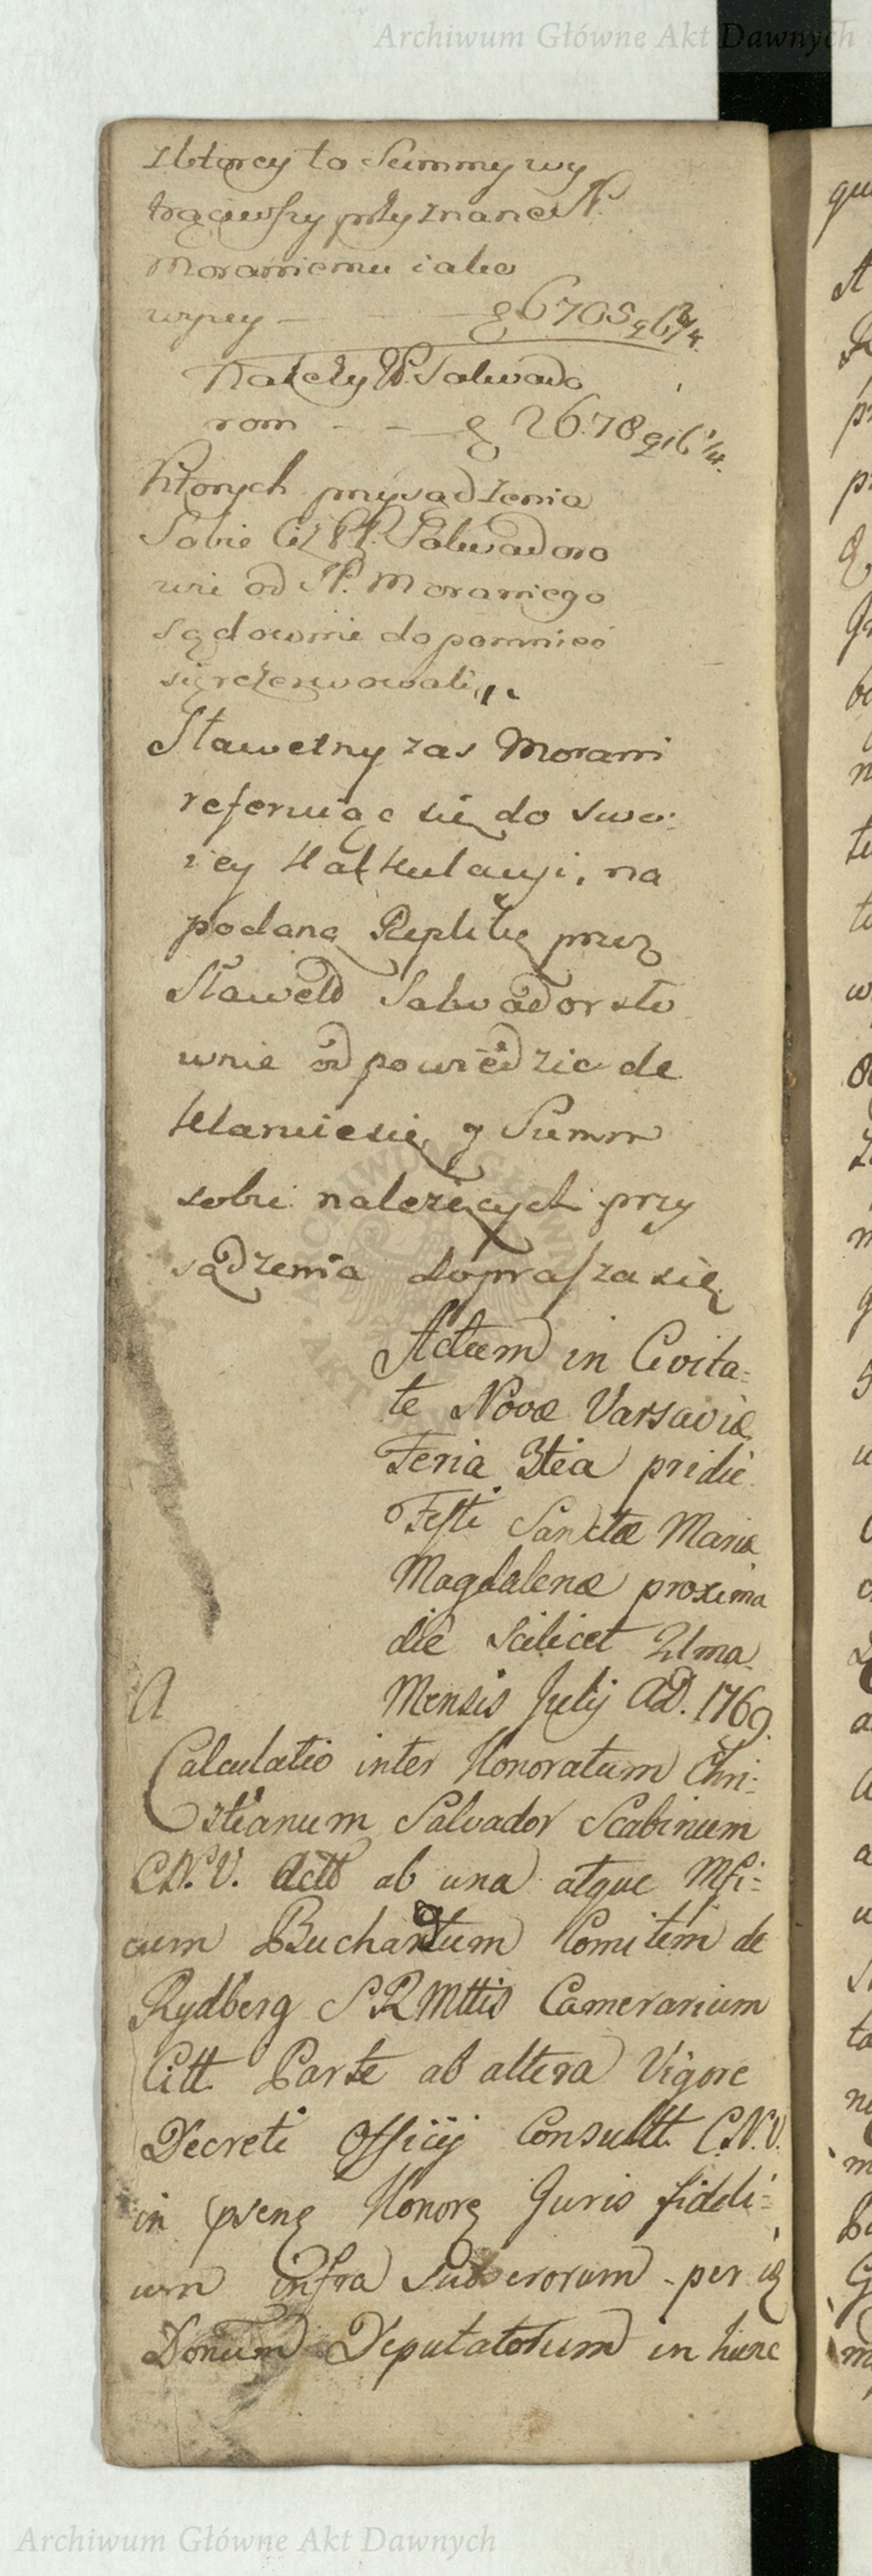 Archiwum Główne Akt Dawnych
Z ktorey to Summy wy
trąciwszy przyznane
Moraniemu iako
wyzey - 6705 g 6 3/4
Należy Salwado
rom - - 2678 gr 6 1/4
ktorych przysądzenia
Sobie Ciż PP. Salwadoro
wie od Sł. Moraniego
sądownie dopomnieć
się rezerwowali
Sławetny zas Morani
referuiąc się do swo:
iey Kalkulacyi, na
podaną Replikę przez
Sławetd Salvadorsto
wnie odpowiedzic de
klaruiesię y Summ
sobie należących przy
sądzenia dopraszasię
Actum in Civita:
te Novæ Varsaviæ
Feria 3tia pridie
Festi Sanctæ Mariæ
Magdalenæ proxima
die scilicet 21ma
Mensis Julij AD. 1769.
A
Calculatio inter Honoratum Chri:
stianum Salvador Scabinum
C.N.V. Actt ab una atque Mfi:
cum Comitem de
Rydberg S R Mttis Camerarium
Citt. Parte ab altera Vigore
Decreti Officij Consultt. C.N.V.
in psens Honorg Juris fideli:
um infra Subserorum per
Donum Deputatorum in hunc
Archiwum Główne Akt Dawnych